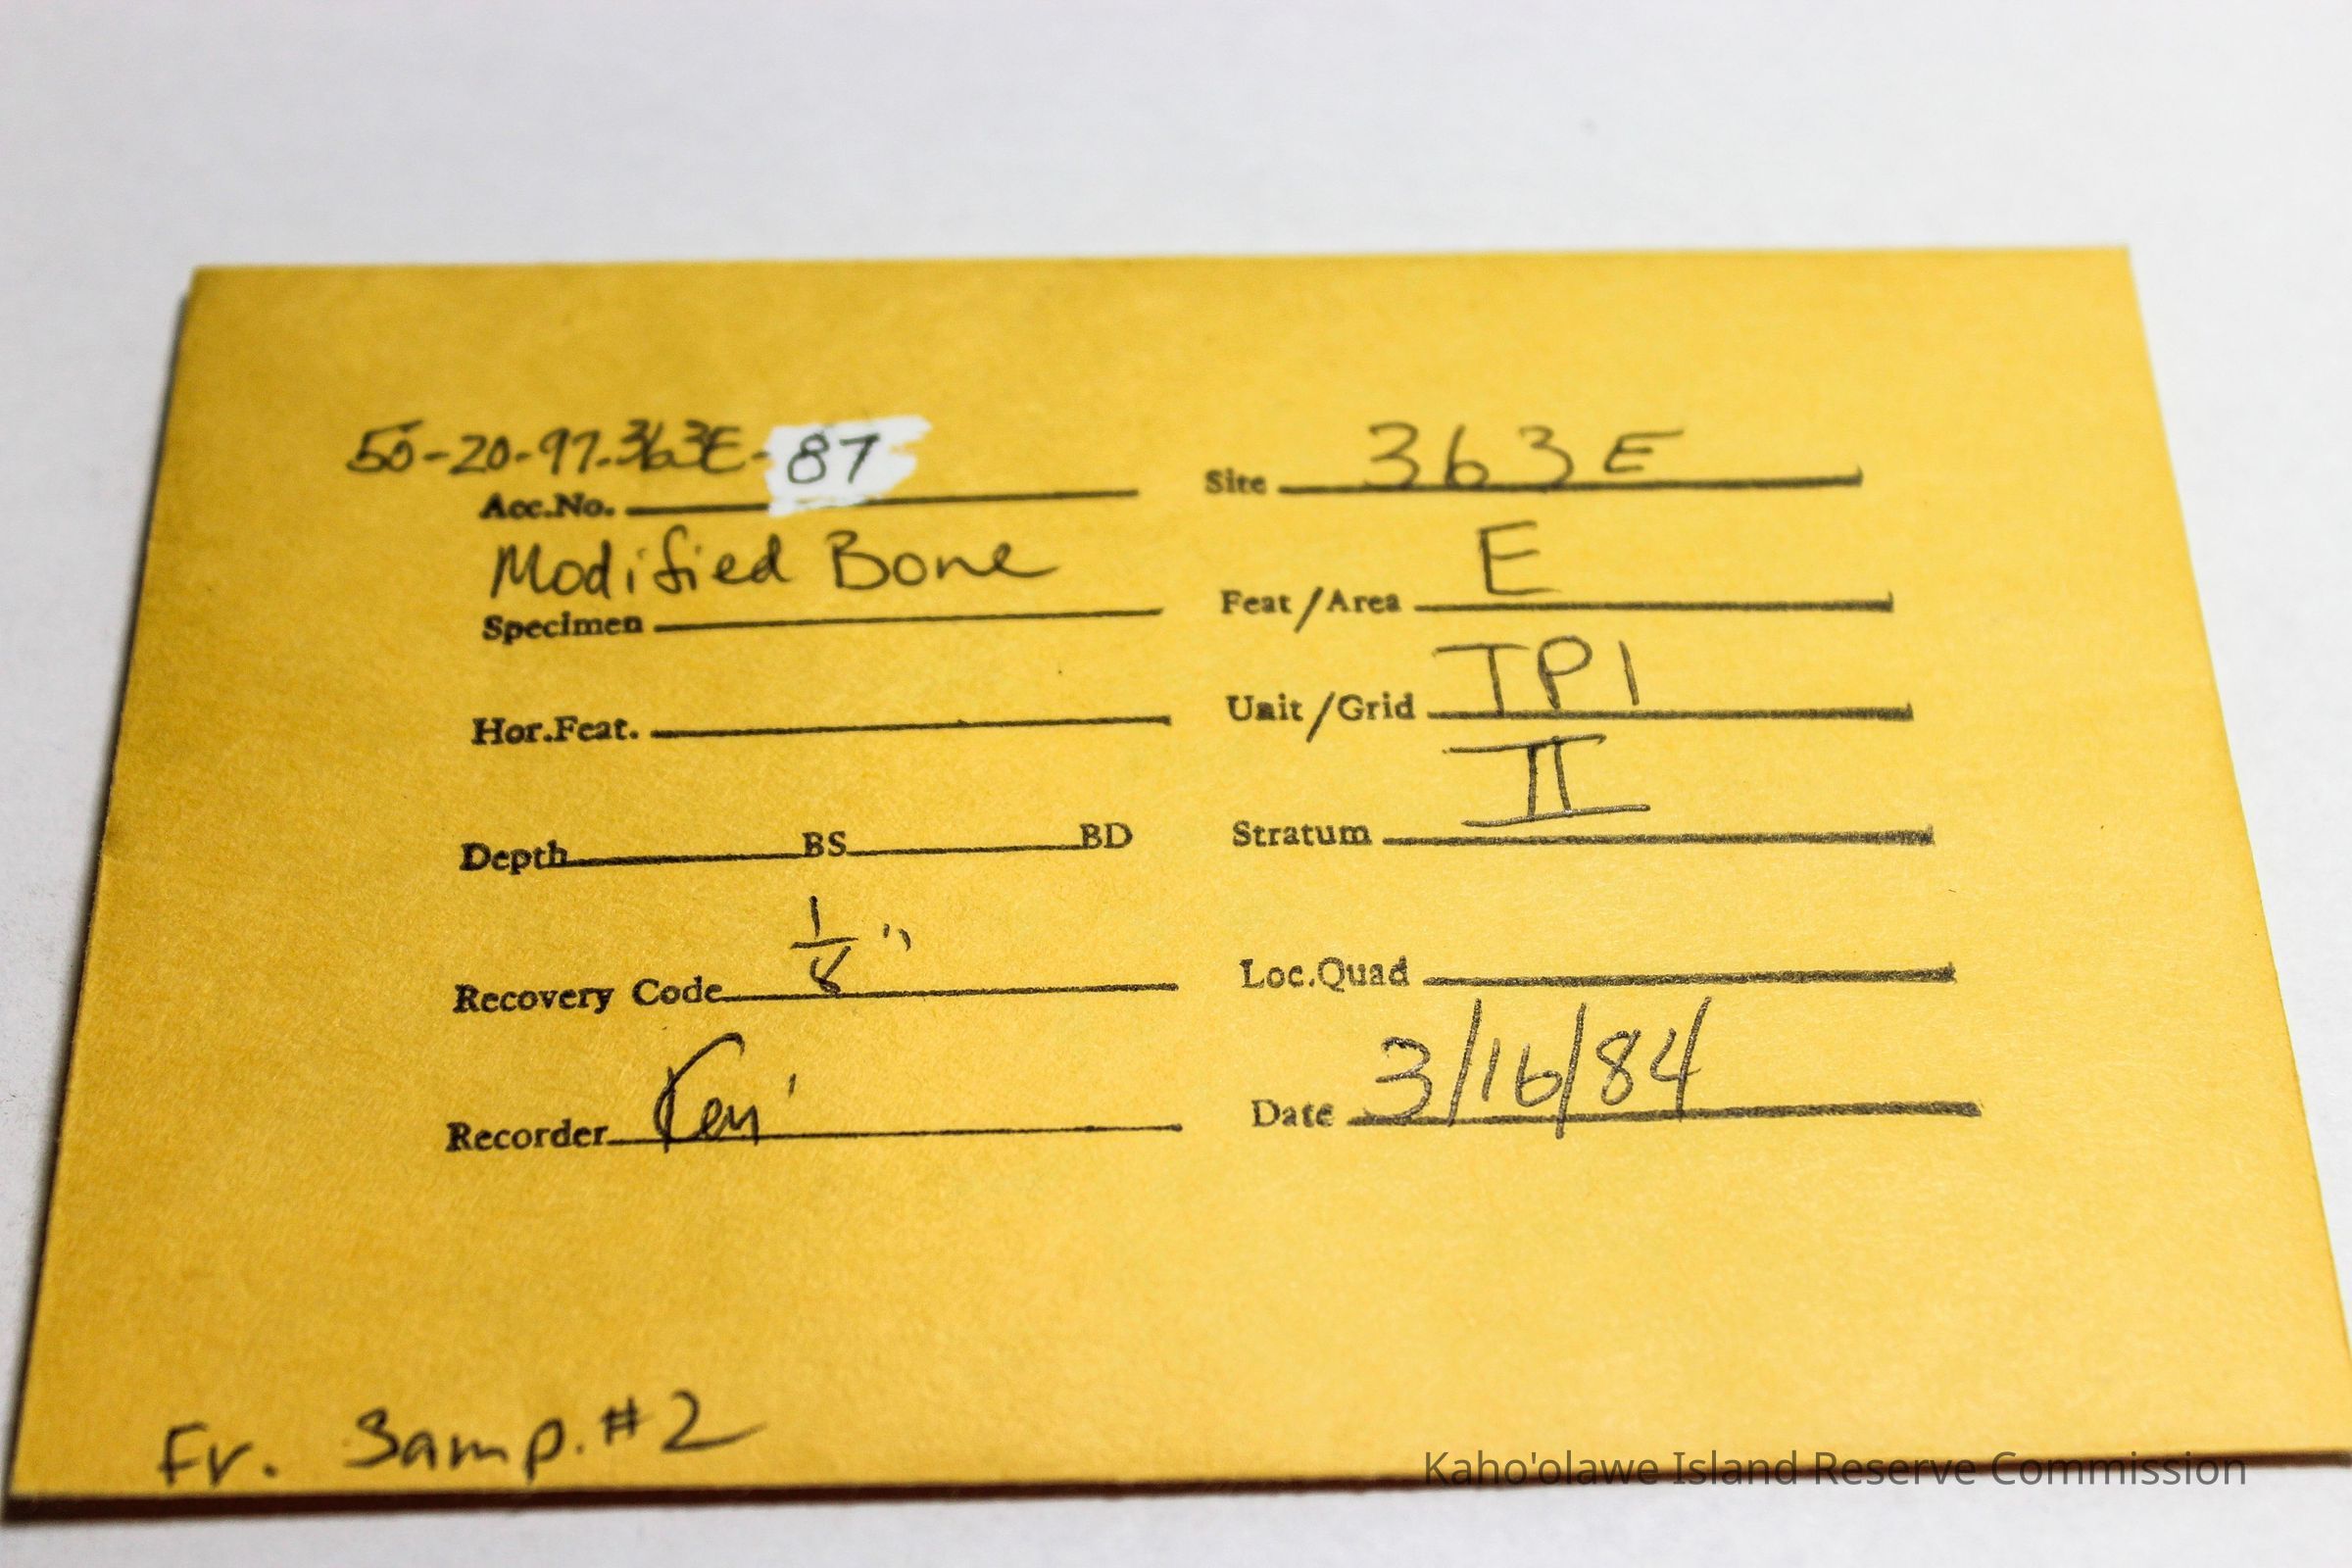 50-20-97-363E-87
Acc.No.
Modified Bone
Specimen
Hor.Feat.
Depth BS BD
1/8"
Recovery Code
Recorder
Fr. Samp. #2
Site 363E
E
Feat/Area
Unit/Grid TP1
II
Stratum
Loc.Quad
Date 3/16/84
Kaho'olawe Island Reserve Commission